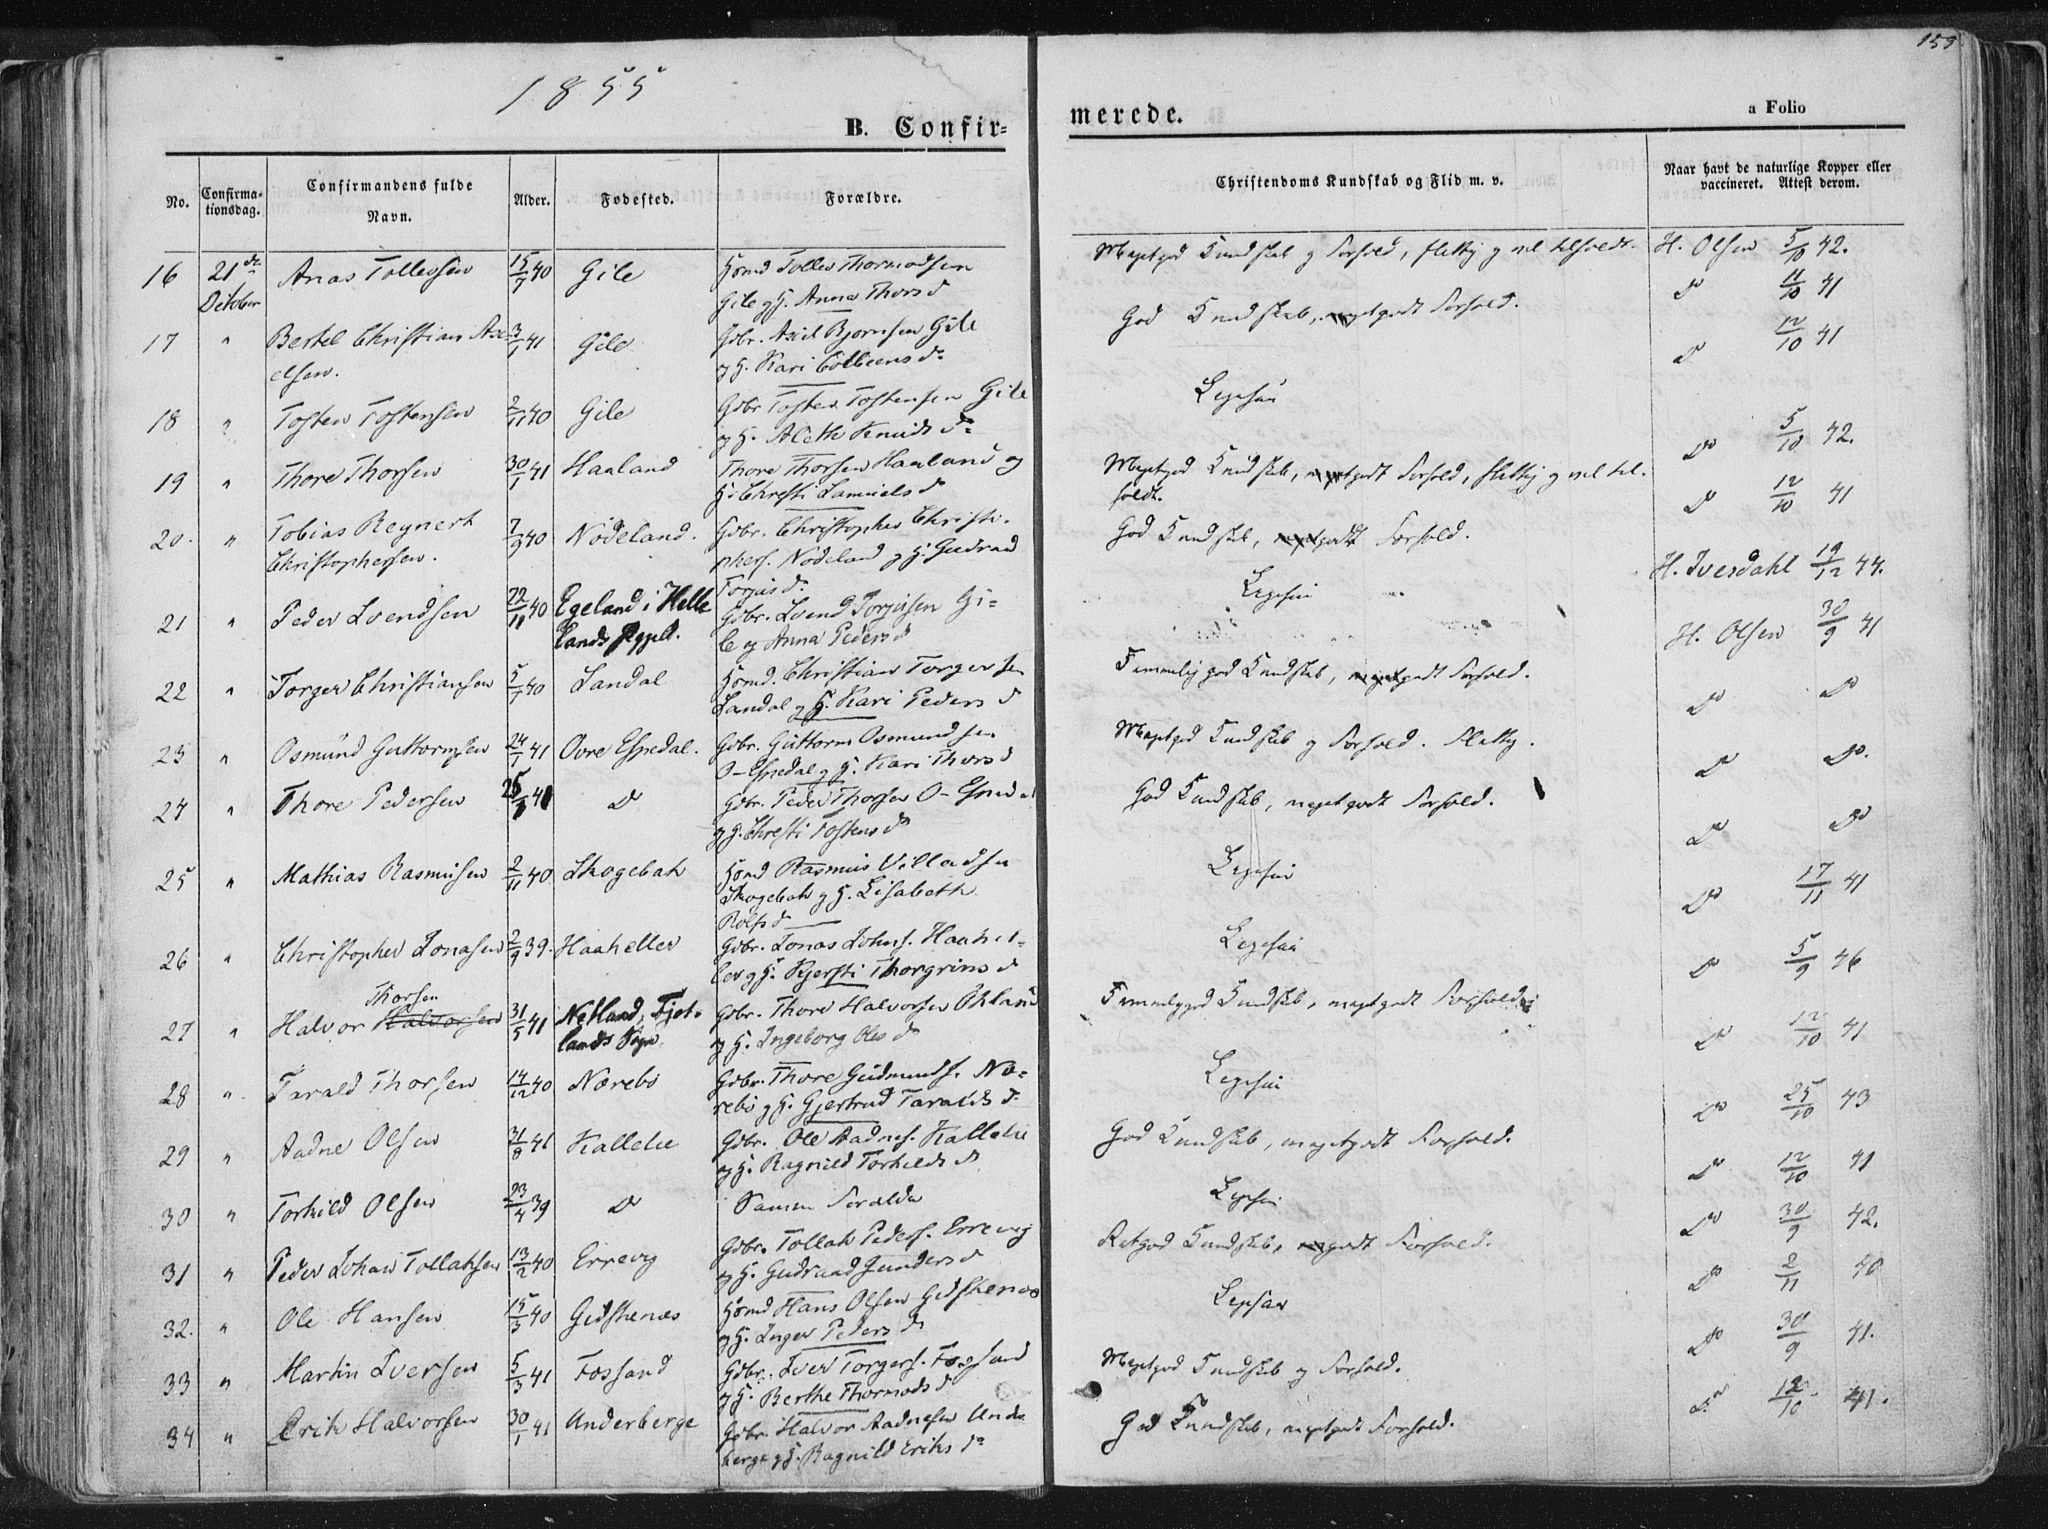 1855
153
B. Confir=
merede.
a Folio
No.
Confirma-
tionsdag.
Confirmandens fulde
Navn.
Alder.
Fødested.
Forældre.
Christendoms Kundskab og Flid m. v.
Naar havt de naturlige Kopper eller
vaccineret. Attest derom.
16 21de Anas Tollessen 15/7 40 Gile Hsmd Tolles Thormodsen
October Gile og H. Anna Thors d
Meget god Kundskab og Forhold, flittig og vel tilholdt. H. Olsen 5/10 42.
17 " Bertel Christian Ax- 3/1 41 Gile Gdbr. Axel Bjørnsen Gile
elsen. og H. Kari Colbeens d.
God Kundskab, meget godt Forhold. Do 11/10 41
18 " Tosten Tostensen 2/11 40 Gile Gdbr Tosten Tostensen Gile
og H. Aleth Knuds d.
Ligesaa Do 12/10 41
19 " Thore Thorsen 30/1 41 Haaland Thore Thorsen Haaland og
H. Christi Samuels d
Meget god Kundskab, meget godt Forhold, flittig og vel til-
holdt. Do 5/10 42.
20. " Tobias Reynert 7/9 40 Nødeland. Gdbr. Christopher Christo-
Christophersen. phers. Nødeland og H. Gudrud
Torjus d.
God Kundskab, meget godt Forhold. Do 12/10 41
21 " Peder Svendsen 22/11 40 Egeland i Helle Gdbr. Svend Torjusen Gi-
lands Sogn. le og Anna Peders d
Ligesaa H. Ivesdahl 19/12 44.
22 " Torger Christiansen 5/7 40 Sandal Hsmd. Christian Torgersen
Sandal og H. Kari Peders d
Temmelig god Kundskab, meget godt Forhold. H. Olsen 30/9 41
23 " Osmund Guttormsen 24/1 41 Ovre Espedal. Gdbr. Guttorm Osmundsen
O-Espedal og H. Kari Thors d
Meget god Kundskab og Forhold. Flittig. Do Do
24 " Thore Pedersen 25/3 41 Do Gdbr. Peder Thorsen O-Espedal
og H. Christi Tostens d.
God Kundskab, meget godt Forhold. Do Do.
25 " Mathias Rasmusen 2/11 40 Skogebak Hsmd Rasmus Villadsen
Skogebak og H. Lisabeth
Rolfs d
Ligesaa Do Do
26 " Christopher Jonasen 2/9 39. Haaheller Gdbr. Jonas Johns. Haahel-
ler og H. Kjersti Thorgrims d
Ligesaa Do 17/11 41
Thorsen
27 " Halvor Halvorsen 31/5 41 Netland, Fjot- Gdbr. Thore Halvorsen Økland
lands Sogn og H. Ingeborg Oles d
Temmelig god Kundskab, meget godt Forhold. Do 5/9 46
28 " Tarald Thorsen 14/12 40 Nærebø Gdbr. Thore Gudmunds. Næ-
rebø og H. Gjertrud Taralds d.
Ligesaa Do 12/10 41
29 " Aadne Olsen 31/8 41 Kallelie Gdbr. Ole Aadnes. Kallelie
og H. Ragnild Torkilds d
God Kundskab, meget godt Forhold. Do 25/10 43
30 " Torkild Olsen 23/4 39 Do Samme Forældre
Ligesaa Do 12/10 41
31 " Peder Johan Tollaksen 13/2 40 Errevig Gdbr. Tollak Peders. Errevig
og H. Gudrand Gunders d
Ret god Kundskab, megodt Forhold. Do 30/9 42.
32. " Ole Hansen 15/3 40 Gidskenæs Hsmd Hans Olsen Gidskenæs
og H. Inger Peders d.
Ligesaa Do 2/11 40
33 " Martin Iversen 5/3 41 Fossand Gdbr. Iver Torgers. Fossand
og H. Berthe Thormods d
Meget god Kundskab og Forhold. Do 30/9 41.
34 " Erik Halvorsen 30/1 41 Underberge Gdbr. Halvor Aadnesen Under
berge og H. Ragnild Eriks d.
God Kundskab, meget godt Forhold. Do 12/10 41.